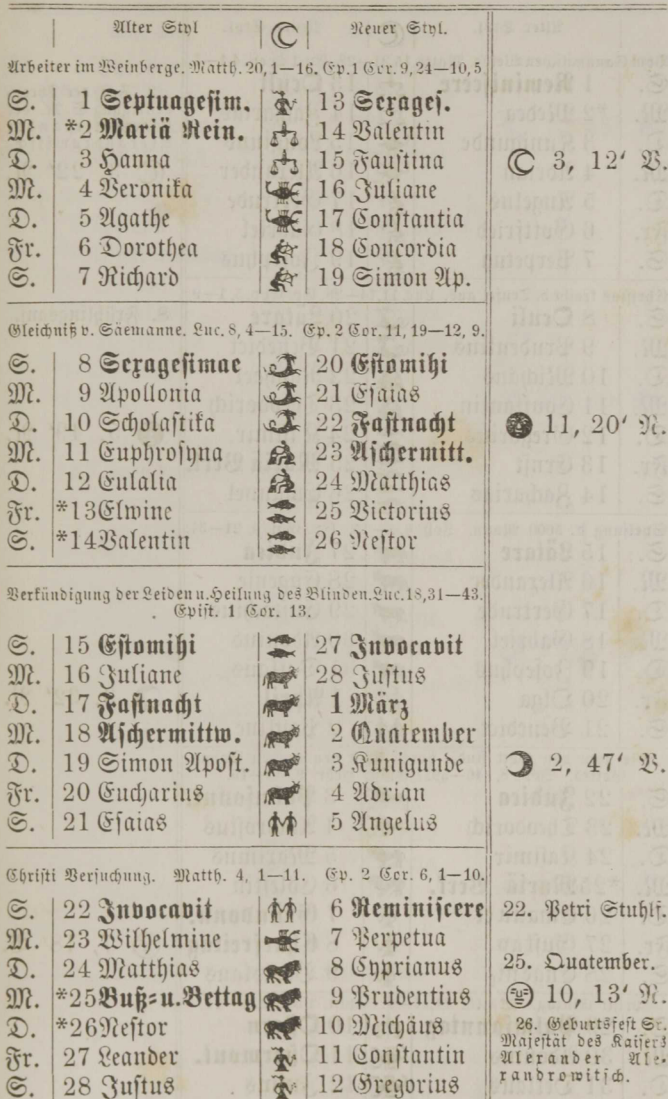 Alter Styl ☾ Neuer Styl.
Arbeiter im Weinberge. Matth. 20, 1—16. Ep. 1 Cor. 9, 24—10, 5
S. 1 Septuagesim. 13 Sexages.
M. *2 Mariä Rein. 14 Valentin
D. 3 Hanna 15 Faustina ☾ 3, 12' V.
M. 4 Veronika 16 Juliane
D. 5 Agathe 17 Constantia
Fr. 6 Dorothea 18 Concordia
S. 7 Richard 19 Simon Ap.
Gleichniß v. Säemanne. Luc. 8, 4—15. Ep. 2 Cor. 11, 19—12, 9.
S. 8 Sexagesimae 20 Estomihi
M. 9 Apollonia 21 Esaias
D. 10 Scholastika 22 Fastnacht 11, 20' N.
M. 11 Euphrosyna 23 Aschermitt.
D. 12 Eulalia 24 Matthias
Fr. *13 Elwine 25 Victorius
S. *14 Valentin 26 Nestor
Verkündigung der Leiden u. Heilung des Blinden. Luc. 18, 31—43.
Epist. 1 Cor. 13.
S. 15 Estomihi 27 Invocavit
M. 16 Juliane 28 Justus
D. 17 Fastnacht 1 März
M. 18 Aschermittw. 2 Quatember
D. 19 Simon Apost. 3 Kunigunde ☽ 2, 47' V.
Fr. 20 Eucharius 4 Adrian
S. 21 Esaias 5 Angelus
Christi Versuchung. Matth. 4, 1—11. Ep. 2 Cor. 6, 1—10.
S. 22 Invocavit 6 Reminiscere 22. Petri Stuhlf.
M. 23 Wilhelmine 7 Perpetua
D. 24 Matthias 8 Cyprianus 25. Quatember.
M. *25 Buß- u. Bettag 9 Prudentius 10, 13' N.
D. *26 Nestor 10 Michäus 26. Geburtsfest Sr.
Majestät des Kaisers
Fr. 27 Leander 11 Constantin Alexander Ale-
xandrowitsch.
S. 28 Justus 12 Gregorius